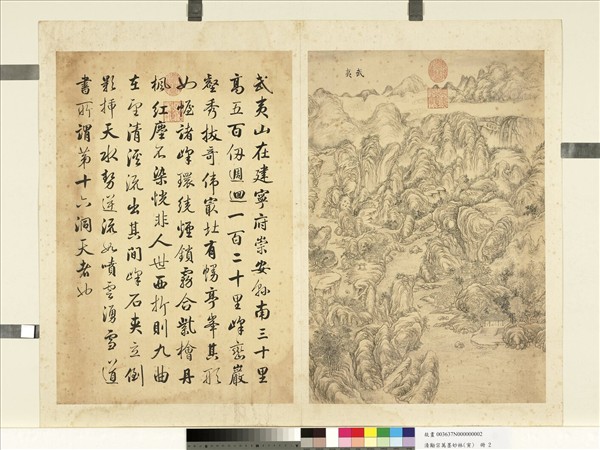 武夷
武夷山在建寧府崇安縣南三十里
高五百仞週迴一百二十里峰巒巖
壑秀拔奇偉最壯有幔亭峯其形
如幄諸峰環繞煙鎖霧合紫檜丹
楓紅塵不染恍非人世西折則九曲
左望清溪流出其間峰石夾立倒
影揷天水勢逆流如噴雲湧雪道
書所謂第十六洞天者也
故畫 003637N000000002
清勵宗萬墨妙珠林(寅) 冊 2